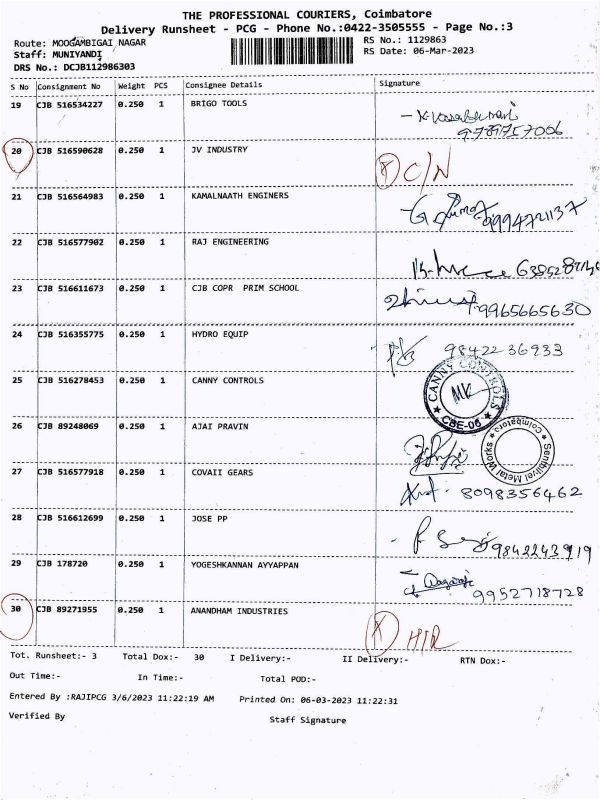 THE PROFESSIONAL COURIERS, Coimbatore
Delivery Runsheet - PCG - Phone No.:0422-3505555 - Page No.:3
Route: MOOGAMBIGAI NAGAR RS No.: 1129863
Staff: MUNIYANDI RS Date: 06-Mar-2023
DRS No.: DCJB112986303
S No Consignment No Weight PCS Consignee Details Signature
19 CJB 516534227 0.250 1 BRIGO TOOLS
9789757006
20 CJB 516590628 0.250 1 JV INDUSTRY X C/N
21 CJB 516564983 0.250 1 KAMALNAATH ENGINERS
9994721137
22 CJB 516577902 0.250 1 RAJ ENGINEERING
23 CJB 516611673 0.250 1 CJB COPR PRIM SCHOOL
9965665630
24 CJB 516355775 0.250 1 HYDRO EQUIP 98422 36933
25 CJB 516278453 0.250 1 CANNY CONTROLS CANNY CONTROLS MK CBE-06
26 CJB 89248069 0.250 1 AJAI PRAVIN Senthilvel Metal Works Coimbatore
27 CJB 516577918 0.250 1 COVAII GEARS 8098356462
28 CJB 516612699 0.250 1 JOSE PP 9842243919
29 CJB 178720 0.250 1 YOGESHKANNAN AYYAPPAN 9952718728
30 CJB 89271955 0.250 1 ANANDHAM INDUSTRIES X
Tot. Runsheet:- 3 Total Dox:- 30 I Delivery:- II Delivery:- RTN Dox:-
Out Time:- In Time:- Total POD:-
Entered By :RAJIPCG 3/6/2023 11:22:19 AM Printed On: 06-03-2023 11:22:31
Verified By Staff Signature